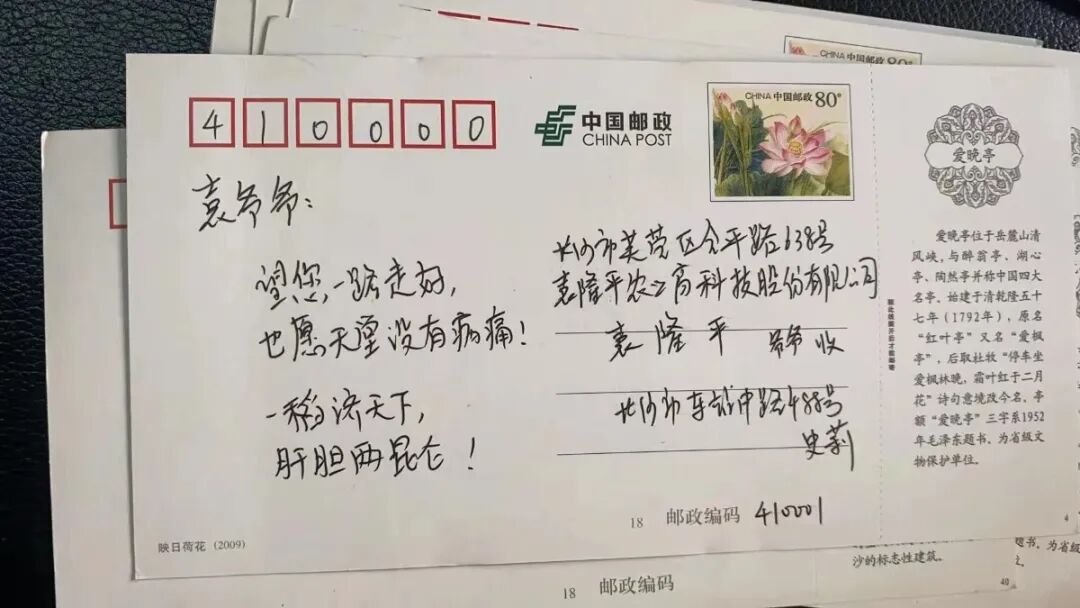 410000
中国邮政
CHINA POST
CHINA 中国邮政 80分
CHINA 中国邮政 80
袁爷爷：
望您一路走好，
也愿天堂没有病痛！
一稻济天下，
肝胆两昆仑！
长沙市芙蓉区合平路638号
袁隆平农业高科技股份有限公司
袁隆平 爷爷 收
长沙市车站中路488号
史莉
18 邮政编码 410001
映日荷花 (2009)
爱晚亭
爱晚亭位于岳麓山清
风峡，与醉翁亭、湖心
亭、陶然亭并称中国四大
名亭。始建于清乾隆五十
七年（1792年），原名
“红叶亭”又名“爱枫
亭”，后取杜牧“停车坐
爱枫林晚，霜叶红于二月
花”诗句意境改今名。亭
额“爱晚亭”三字系1952
年毛泽东题书。为省级文
物保护单位。
4
18 邮政编码
沙的标志性建筑。
题书。为省级
40